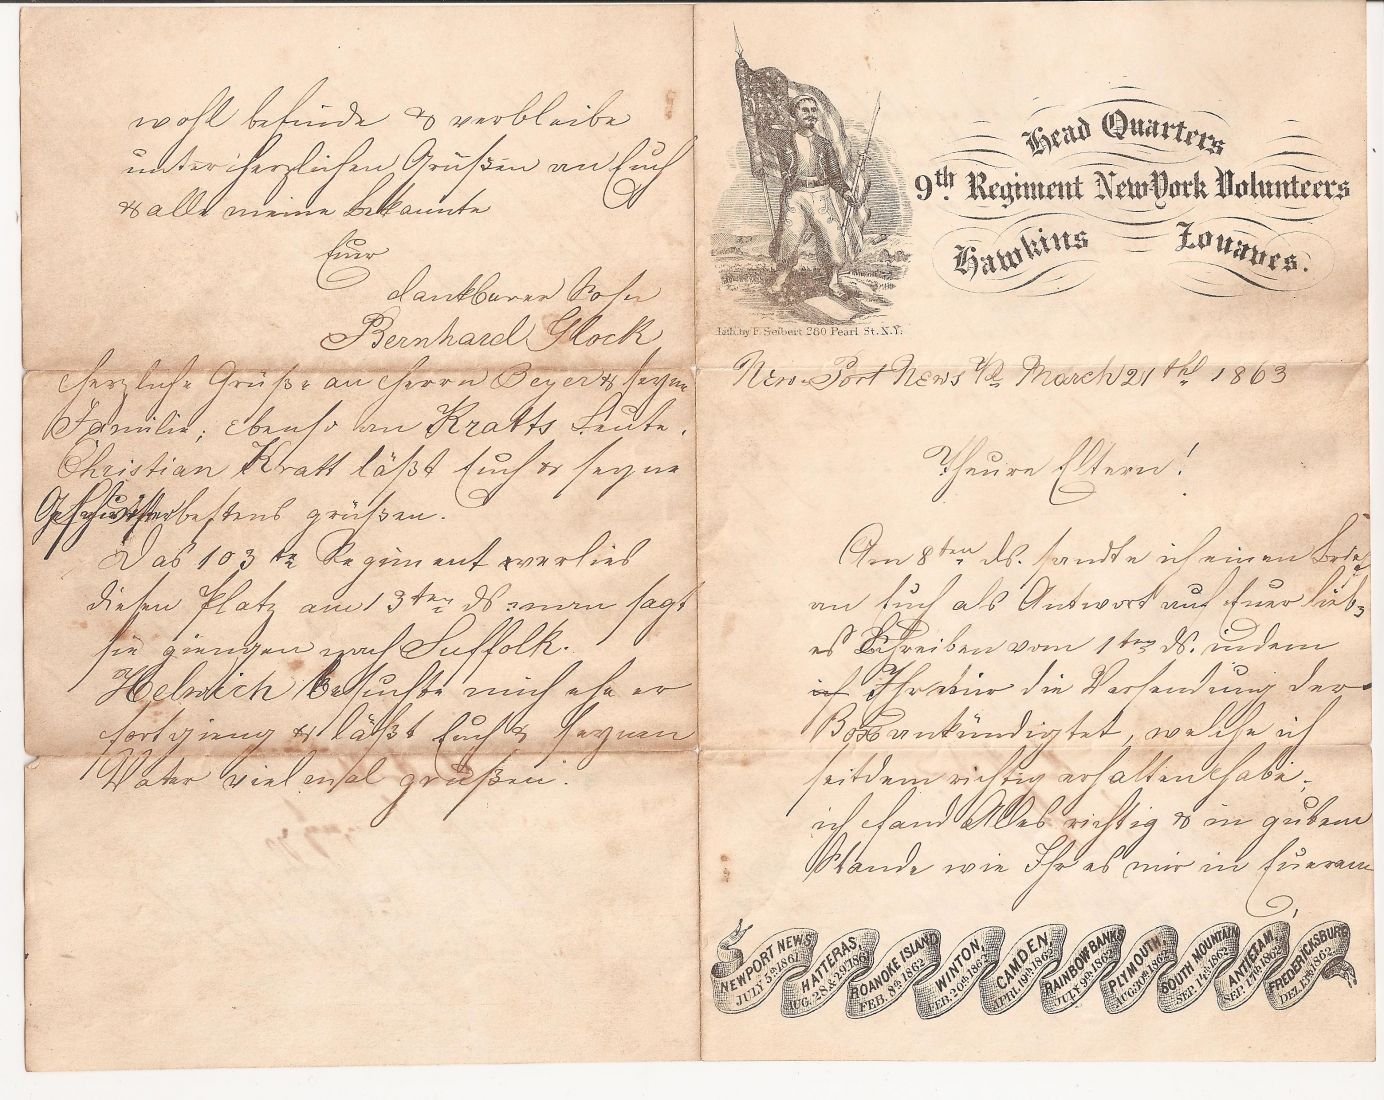 Head Quarters
9th. Regiment New York Volunteers
Hawkins Zouaves.
Lith. by F. Seibert 280 Pearl St. N.Y.
New-Port News Va March 21 thl 1863
Theure Eltern!
Am 8ten ds. sandte ich einen Brief
an Euch als Antwort auf Euer lieb-
es Schreiben vom 1ten ds. indem
Ihr mir die Versendung der
Box ankündigtet, welche ich
seitdem richtig erhalten habe,
ich fand Alles richtig & in gutem
Stande wie Ihr es mir in Euerem
NEWPORT NEWS JULY 5th 1861
HATTERAS, AUG. 28 & 29 1861
ROANOKE ISLAND FEB. 8th 1862
WINTON, FEB. 20th 1862
CAMDEN, APRIL 19th 1862
RAINBOW-BANKS JULY 9th 1862
PLYMOUTH, AUG. 30th 1862
SOUTH MOUNTAIN SEP. 14th 1862
ANTIETAM, SEP. 17th 1862
FREDERICKSBURG DEC. 13th 1862
wohl befinde & verbleibe
unter herzlichen Grüßen an Euch
& alle meine Bekannte
Euer
dankbarer Sohn
Bernhard Glock
Herzliche Grüße an Herrn Beyer & seyne
Familie; ebenso an Kratts Leute.
Christian Kratt läßt Euch & seyne
Geschwister bestens grüßen.
Das 103te Regiment verlies
diesen Platz am 13ten ds. man sagt
sie giengen nach Suffolk.
Helmich besuchte mich ehe er
fortgieng & läßt Euch & seynen
Vater vielmal grüßen.